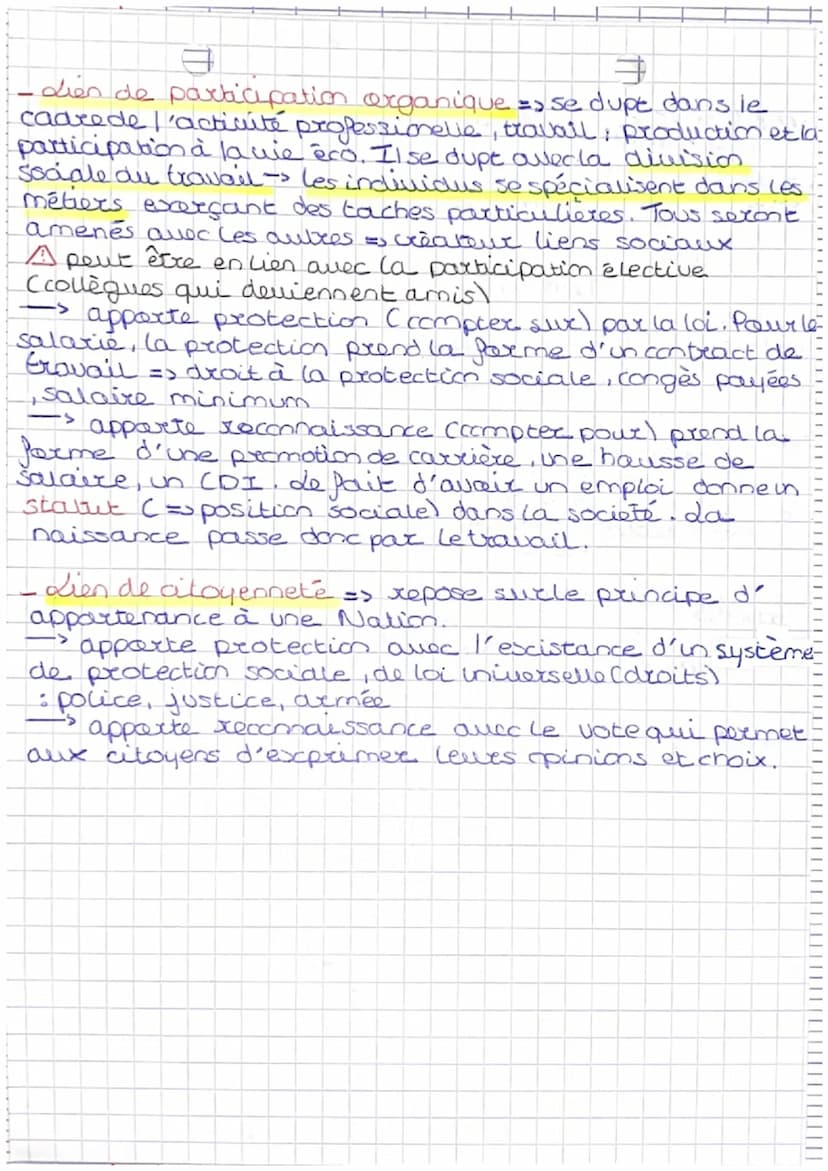 - Lien de participation organique => se dvpt dans le
cadre de l'activité professionelle, travail, production et la
participation à la vie éco. Il se dvpt avec la division
sociale du travail -> les individus se spécialisent dans les
métiers exerçant des taches particulières. Tous seront
amenés avec les autres => créateur liens sociaux
⚠ peut être en lien avec la participation élective
(collègues qui deviennent amis)
-> apporte protection (compter sur) par la loi. Pour le
salarié, la protection prend la forme d'un contract de
travail => droit à la protection sociale, congès payées
, salaire minimum
-> apporte reconnaissance (compter pour) prend la
forme d'une promotion de carrière, une hausse de
salaire, un CDI. Le fait d'avoir un emploi donne un
statut (=> position sociale) dans la societé. La
naissance passe donc par le travail.
- Lien de citoyenneté => repose sur le principe d'
appartenance à une Nation.
-> apporte protection avec l'existance d'un système
de protection sociale, de loi universelle (droits)
: police, justice, armée
-> apporte reconnaissance avec le vote qui permet
aux citoyens d'exprimer leurs opinions et choix.